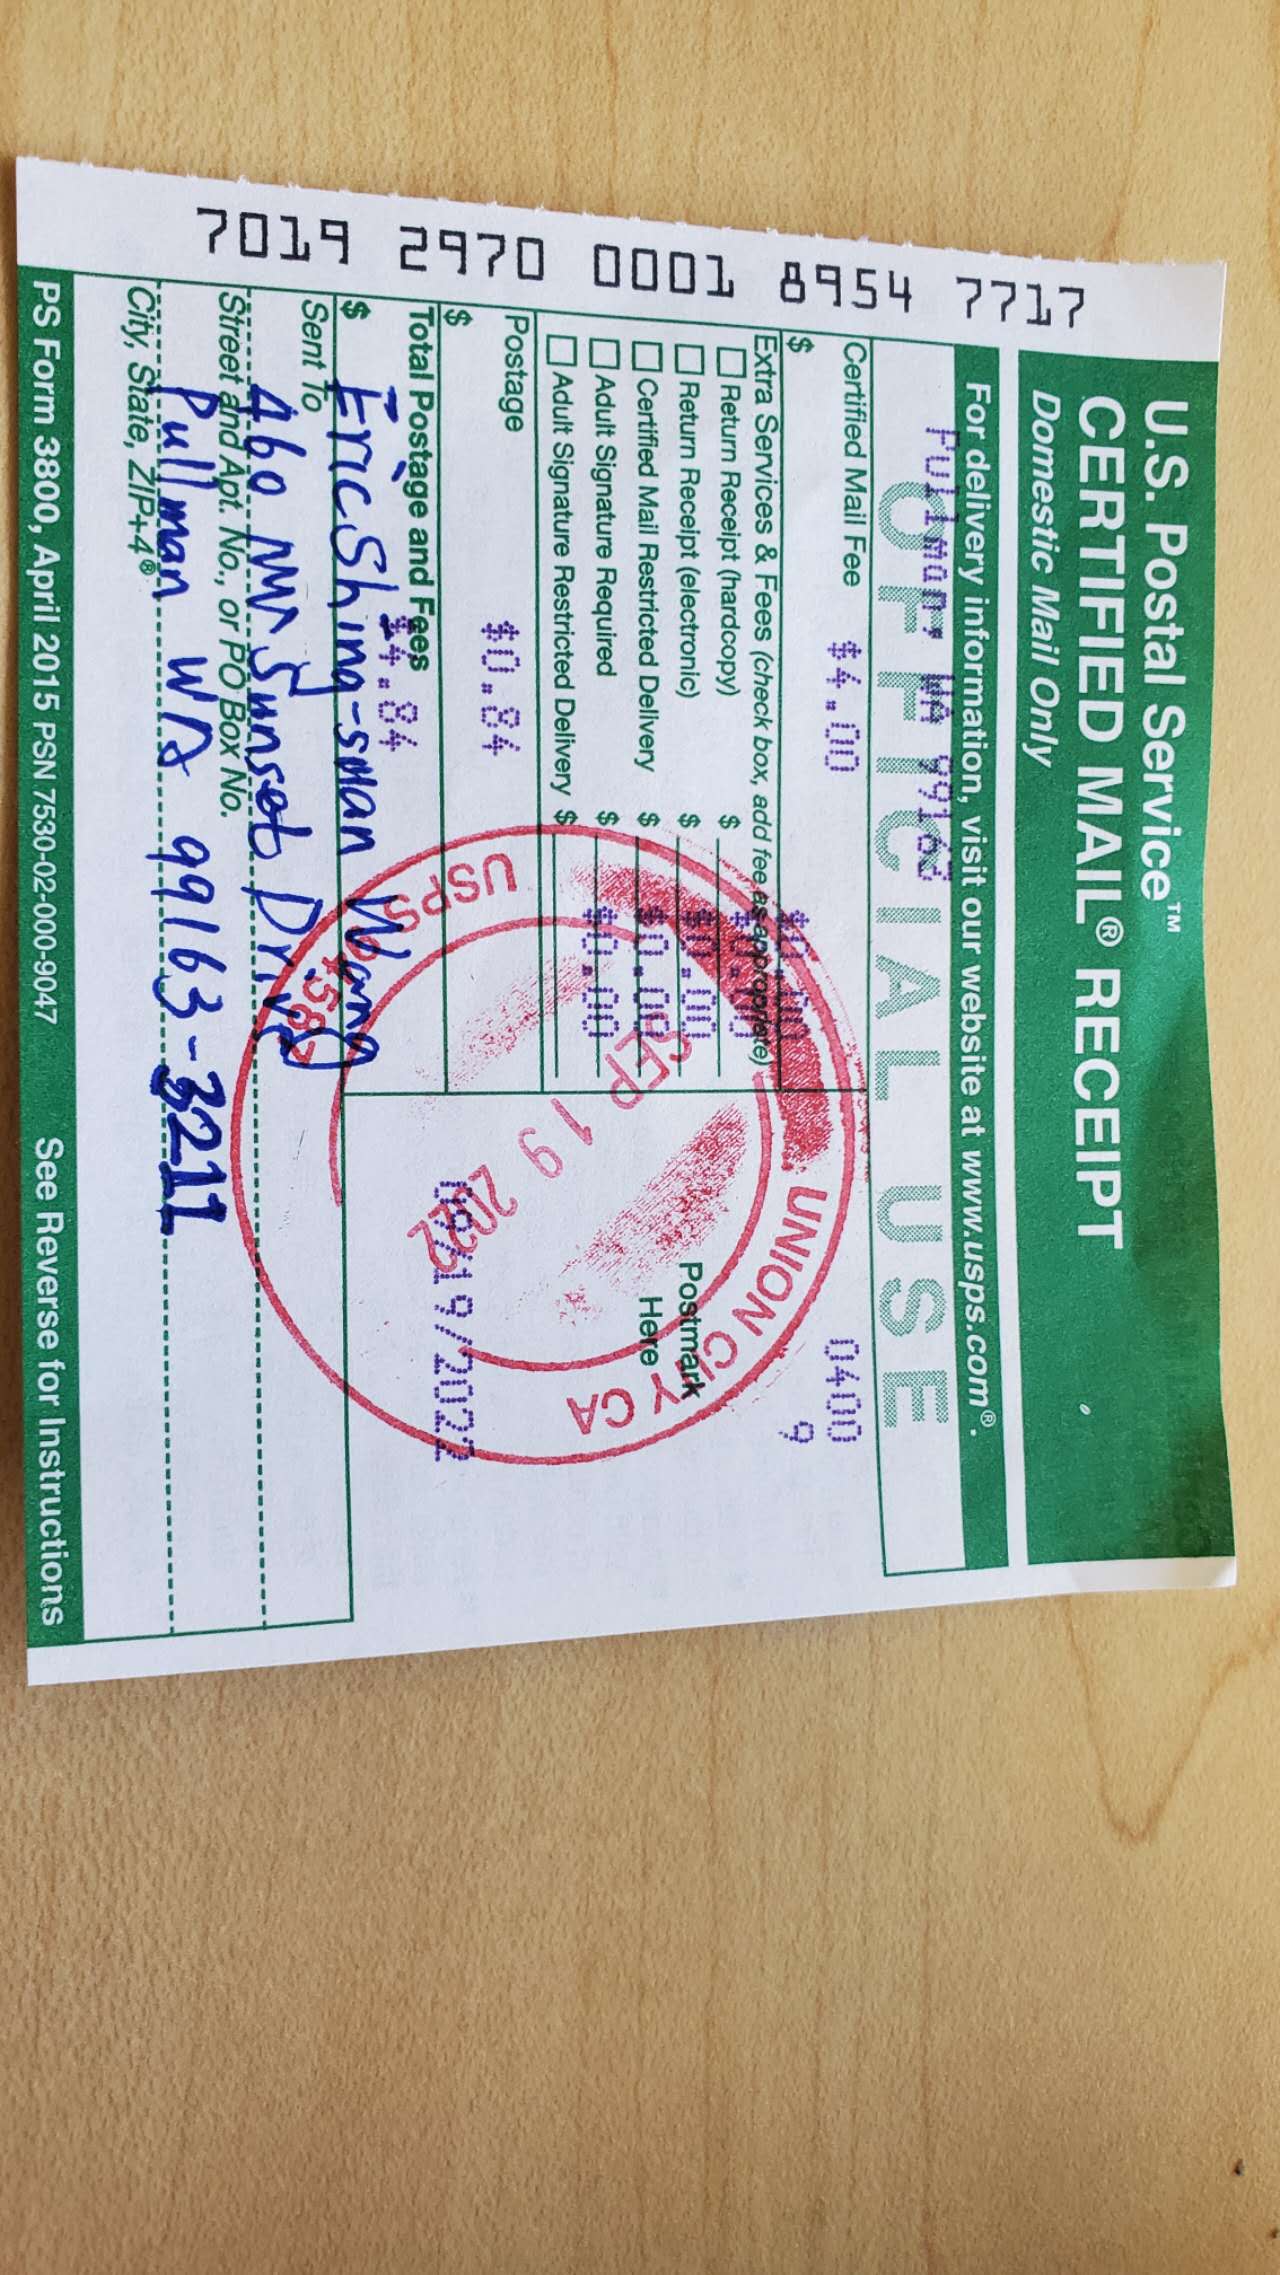 7019 2970 0001 8954 7717
U.S. Postal Service™
CERTIFIED MAIL® RECEIPT
Domestic Mail Only
For delivery information, visit our website at www.usps.com®.
Pullman, WA 99163
OFFICIAL USE
Certified Mail Fee
$4.00
$
0400
9
Extra Services & Fees (check box, add fee as appropriate)
$0.00
Return Receipt (hardcopy) $
Return Receipt (electronic) $ $0.00
Certified Mail Restricted Delivery $ $0.00
Adult Signature Required $ $0.00
Adult Signature Restricted Delivery $
Postmark
Here
Postage
$0.84
$
09/19/2022
Total Postage and Fees
$4.84
$
UNION CITY CA
SEP 19 2022
USPS
Sent To
Eric Shing-sman Wang
Street and Apt. No., or PO Box No.
460 NW Sunset Drive
City, State, ZIP+4®
Pullman WA 99163-3211
PS Form 3800, April 2015 PSN 7530-02-000-9047
See Reverse for Instructions